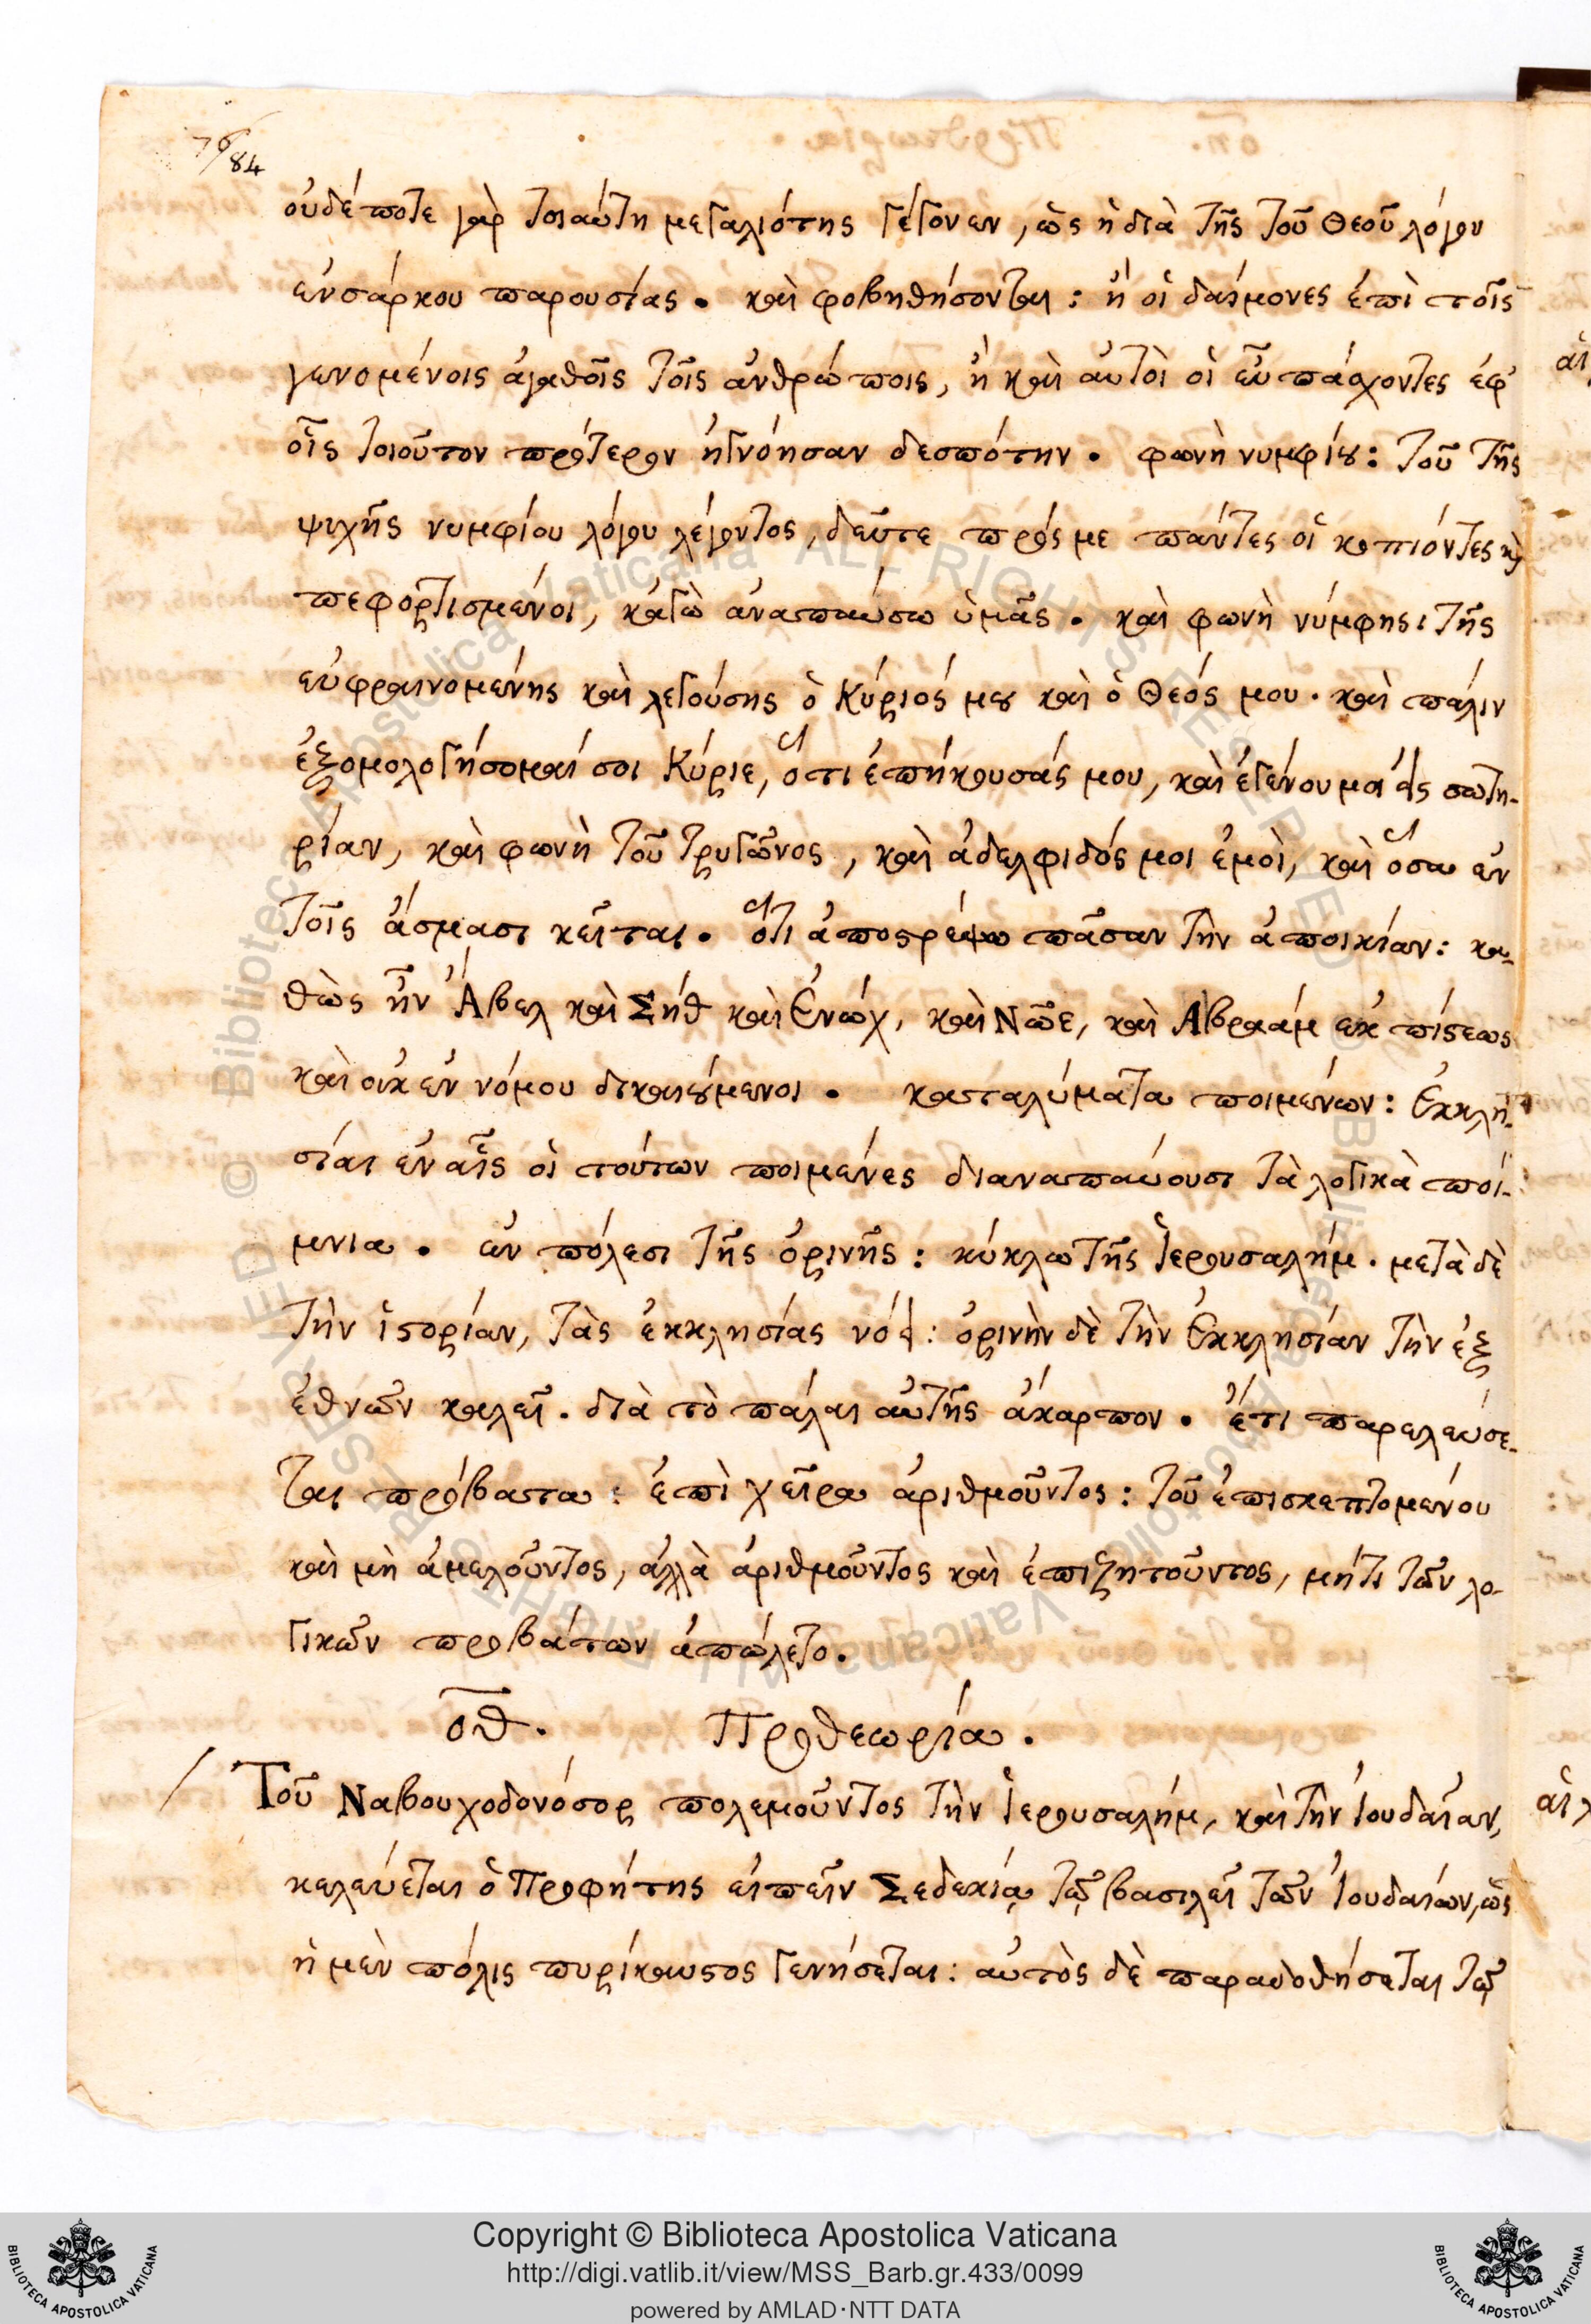 76/84
οὐδέποτε γὰρ τοιαύτη μεγαλιότης γέγονεν, ὡς ἡ διὰ τῆς τοῦ Θεοῦ λόγου
ἐνσάρκου παρουσίας. καὶ φοβηθήσονται: ἢ οἱ δαίμονες ἐπὶ τοῖς
γενομένοις ἀγαθοῖς τοῖς ἀνθρώποις, ἢ καὶ αὐτοὶ οἱ εὖ πάσχοντες ἐφ'
οἷς τοιοῦτον πρότερον ἠγνόησαν δεσπότην. φωνὴ νυμφίου: τοῦ τῆς
ψυχῆς νυμφίου λόγου λέγοντος, δεῦτε πρός με πάντες οἱ κοπιόντες καὶ
πεφορτισμένοι, κἀγὼ ἀναπαύσω ὑμᾶς. καὶ φωνὴ νύμφης: τῆς
εὐφραινομένης καὶ λεγούσης ὁ Κύριός μου καὶ ὁ Θεός μου. καὶ πάλιν
ἐξομολογήσομαί σοι Κύριε, ὅτι ἐπήκουσάς μου, καὶ ἐγένου μοι εἰς σωτη-
ρίαν, καὶ φωνὴ τοῦ τρυγῶνος, καὶ ἀδελφιδός μοι ἐμοὶ, καὶ ὅσα ἐν
τοῖς ἄσμασι κεῖται. ὅτι ἀποστρέψω πᾶσαν τὴν ἀποικίαν: κα-
θὼς ἦν Ἄβελ καὶ Σήθ καὶ Ἐνώχ, καὶ Νῶε, καὶ Αβραάμ ἐκ πίστεως
καὶ οὐκ ἐν νόμου δικαιούμενοι. καταλύματα ποιμένων: Ἐκκλη-
σίαι ἐν αἷς οἱ τούτων ποιμένες διαναπαύουσι τὰ λογικὰ ποί-
μνια. ἐν πόλεσι τῆς ὀρινῆς: κύκλω τῆς Ἱερουσαλήμ. μετὰ δὲ
τὴν ἱστορίαν, τὰς ἐκκλησίας νόει: ὀρινὴν δὲ τὴν Ἐκκλησίαν τὴν ἐξ
ἐθνῶν καλεῖ. διὰ τὸ πάλαι αὐτῆς ἄκαρπον. ἔτι παρελεύσε-
ται πρόβατα: ἐπὶ χεῖρα ἀριθμοῦντος: τοῦ ἐπισκεπτομένου
καὶ μὴ ἀμελοῦντος, ἀλλὰ ἀριθμοῦντος καὶ ἐπιζητοῦντος, μήτι τῶν λο-
γικῶν προβάτων ἀπώλετο.
οθ. Προθεωρία.
Τοῦ Ναβουχοδονόσορ πολεμοῦντος τὴν Ἱερουσαλήμ, καὶ τὴν Ἰουδαίαν,
κελεύεται ὁ Προφήτης εἰπεῖν Σεδεκίᾳ τῷ βασιλεῖ τῶν Ἰουδαίων, ὡς
ἡ μὲν πόλις πυρίκαυστος γενήσεται: αὐτὸς δὲ παραδοθήσεται τῷ
Copyright © Biblioteca Apostolica Vaticana
http://digi.vatlib.it/view/MSS_Barb.gr.433/0099
powered by AMLAD·NTT DATA